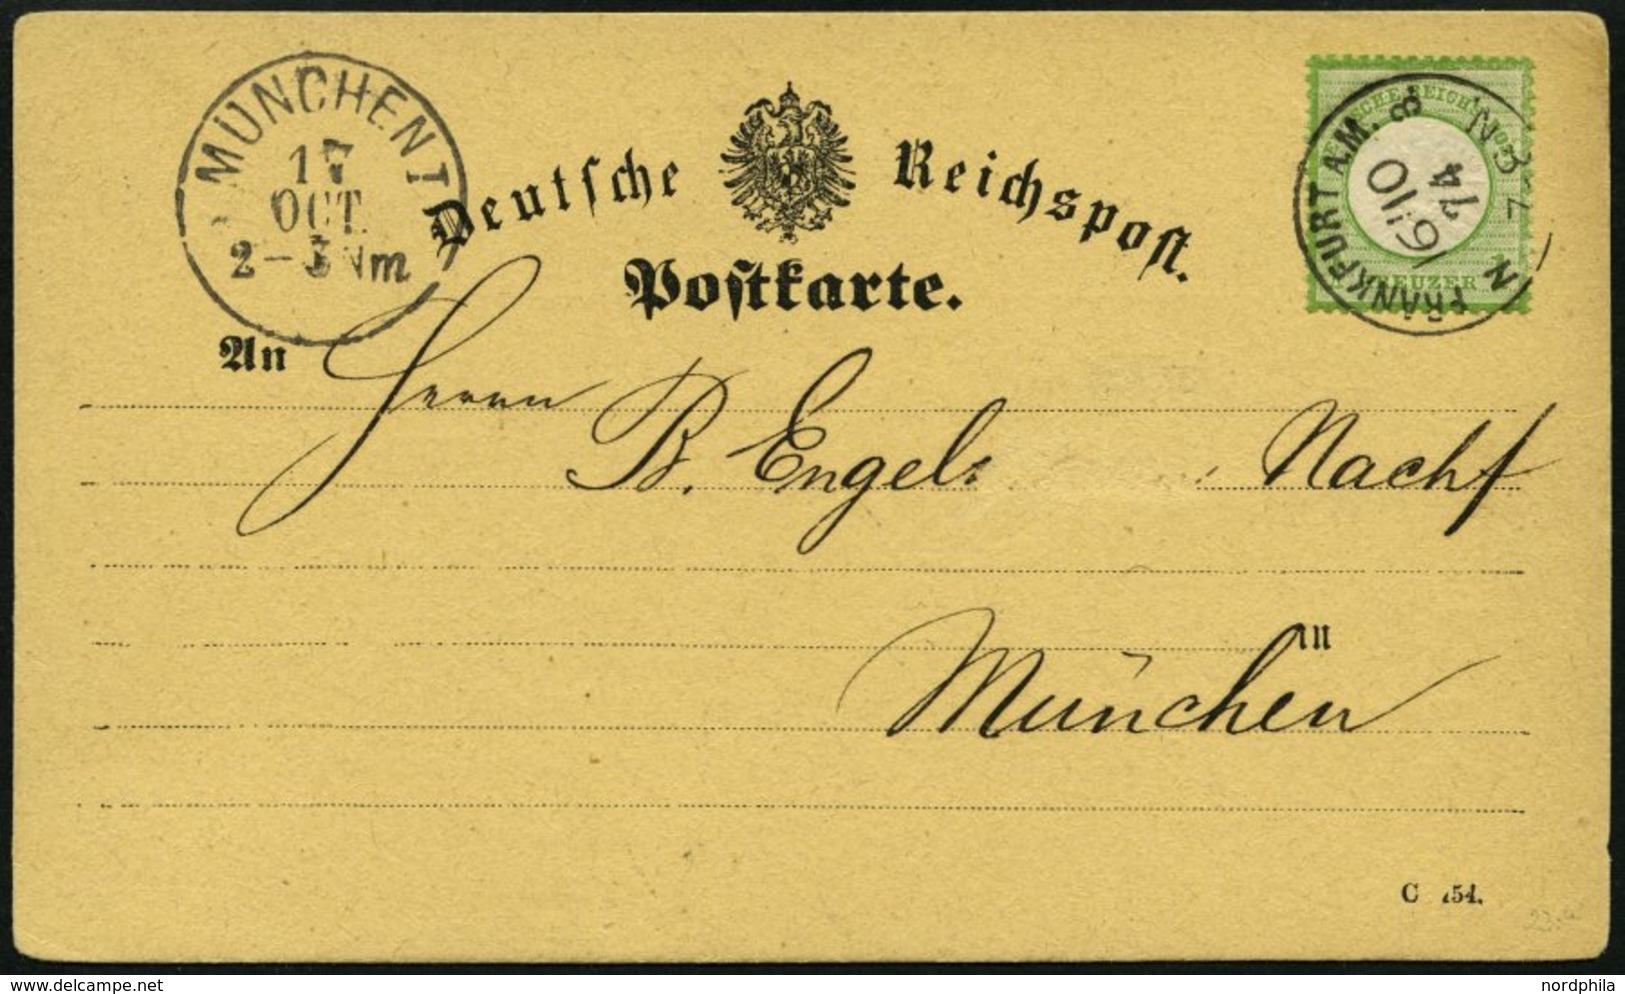 MÜNCHEN I
17
OCT.
2-3 Nm
Deutsche Reichspost.
Postkarte.
FRANKFURT A.M. 8
16/10
74
KREUZER
An Herrn
B. Engel Nachf
in
München
C 154.
nordphila